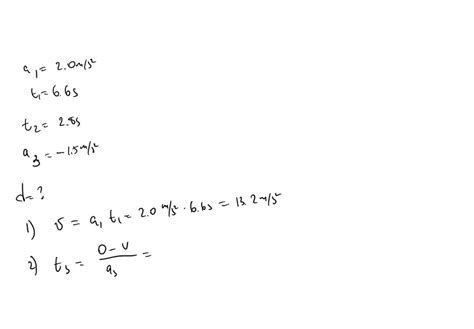 a₁ = 2.0 m/s²
t₁ = 6.6s
t₂ = 2.8s
a₃ = -1.5 m/s²
d = ?
1) v = a₁ t₁ = 2.0 m/s² · 6.6s = 13.2 m/s²
2) t₃ = (0 - v)/a₃ =